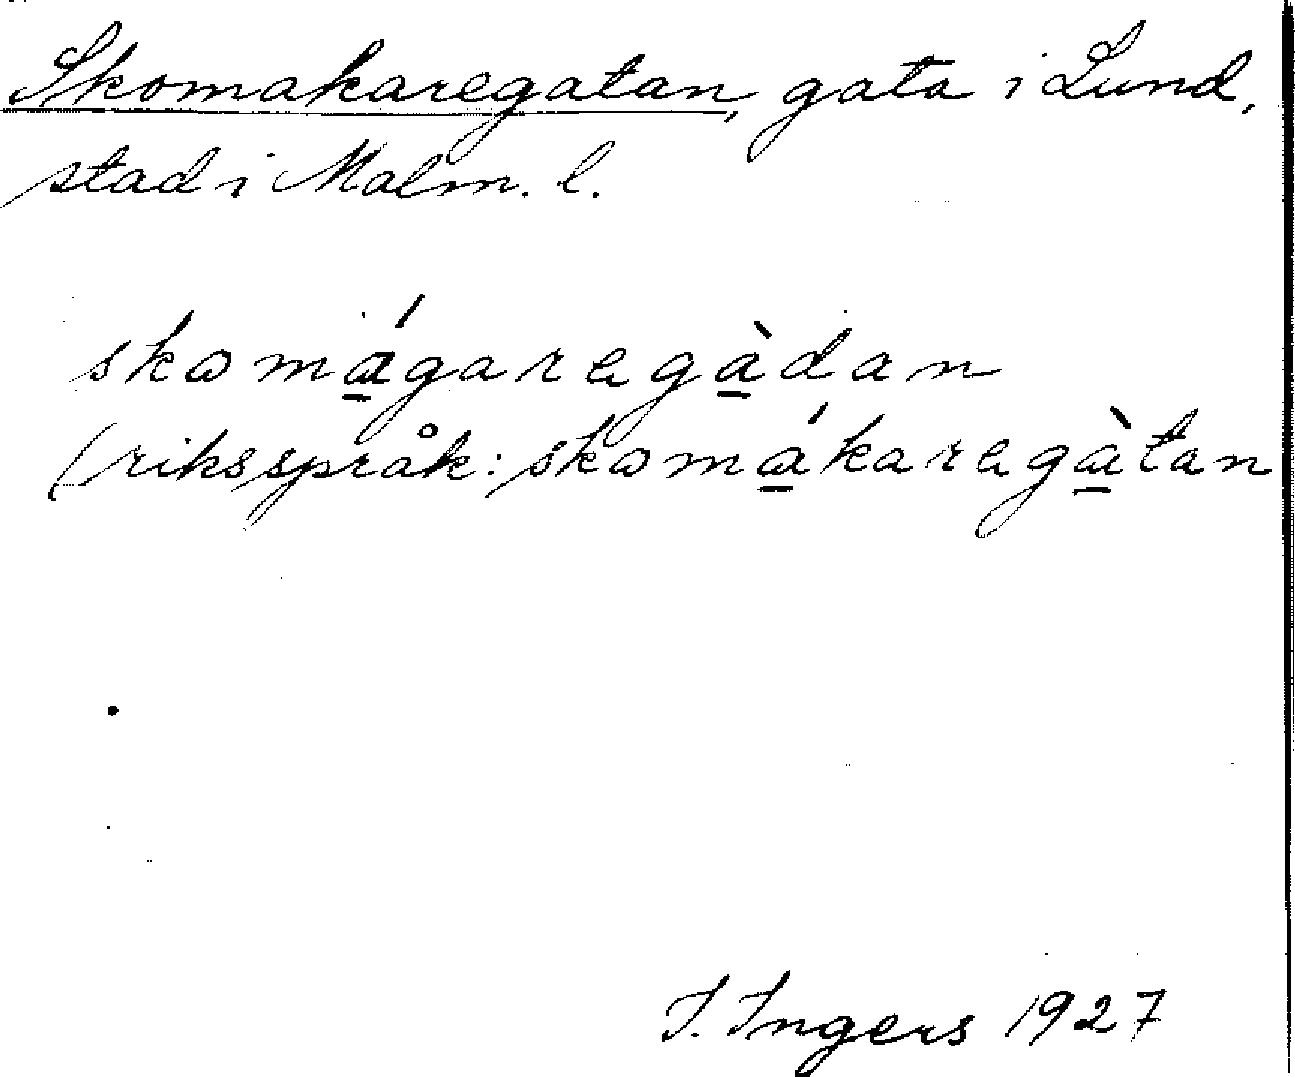 Skomakaregatan, gata i Lund,
stad i Malm. l.
skωmá̱garegà̱dan
(riksspråk: skωmá̱karegà̱tan
I. Ingers 1927